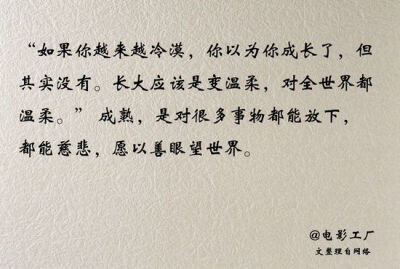 “如果你越来越冷漠，你以为你成长了，但
其实没有。长大应该是变温柔，对全世界都
温柔。” 成熟，是对很多事物都能放下，
都能慈悲，愿以善眼望世界。
@电影工厂
文整理自网络